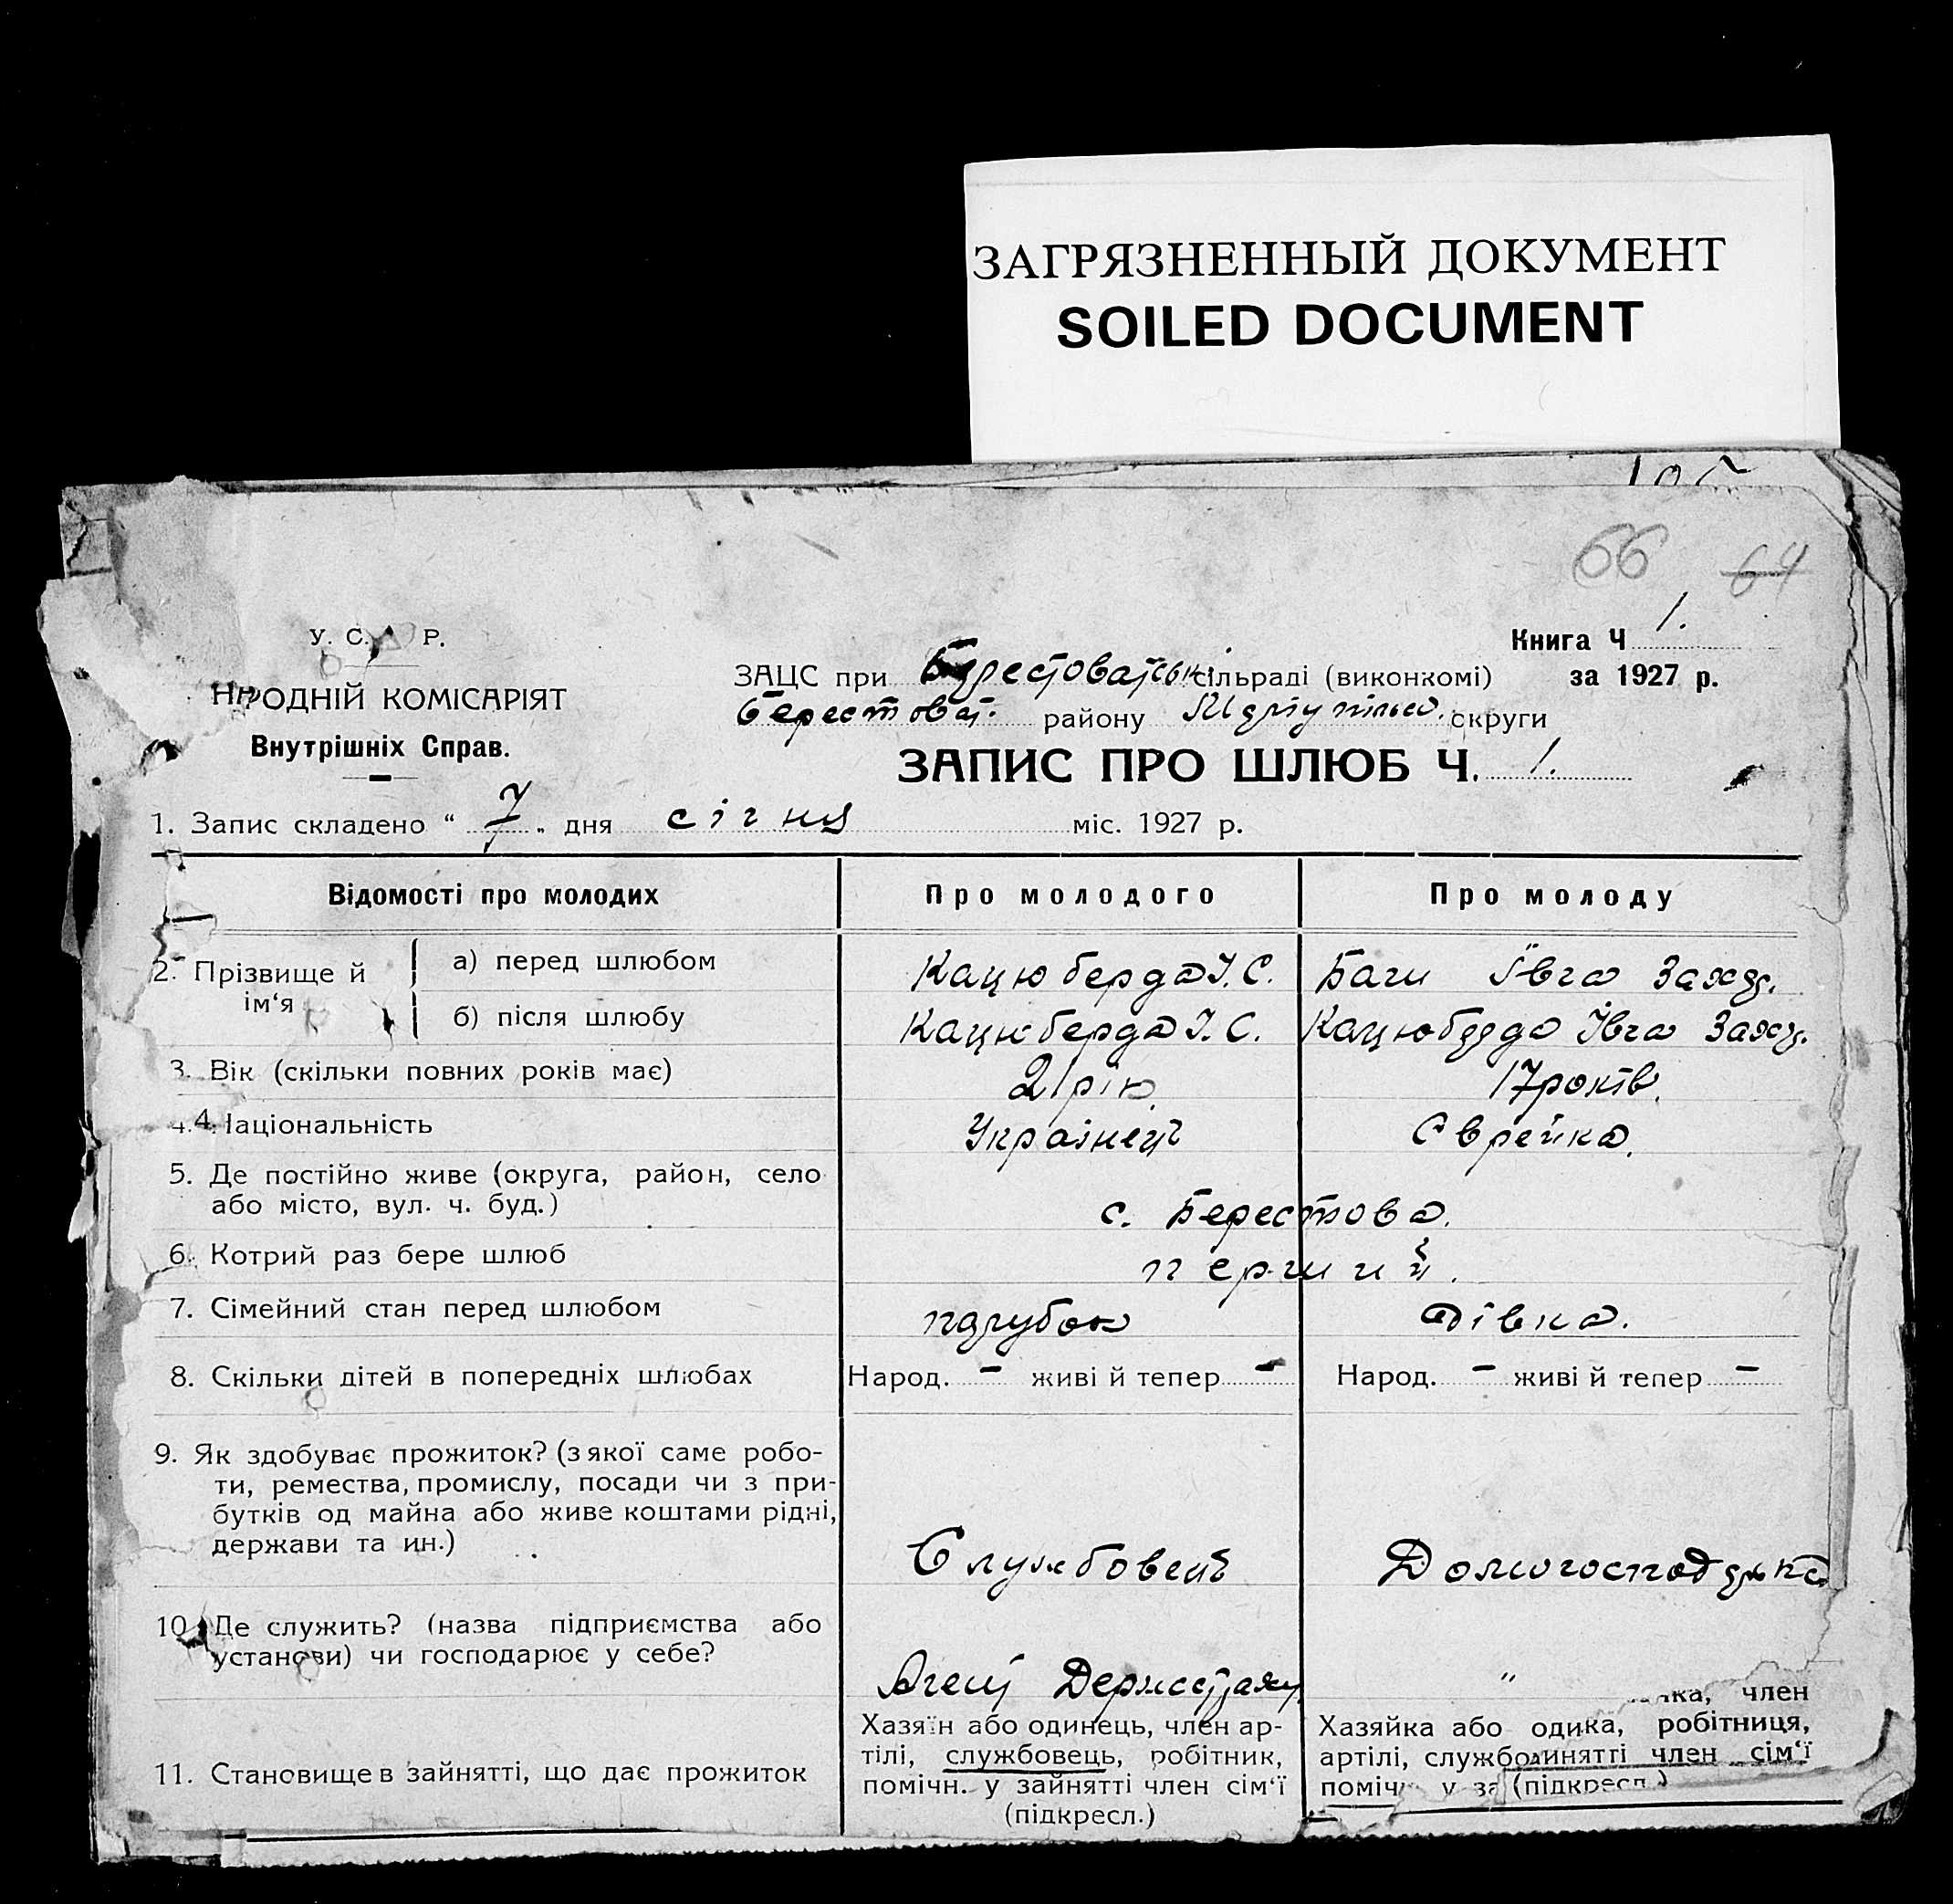 ЗАГРЯЗНЕННЫЙ ДОКУМЕНТ
SOILED DOCUMENT
66 64
У. С. Р.
НАРОДНІЙ КОМІСАРІЯТ
Внутрішніх Справ.
Книга Ч 1.
за 1927 р.
ЗАЦС при Берестоватськ. сільраді (виконкомі)
Берестоват. району Маріупільск. округи
ЗАПИС ПРО ШЛЮБ Ч. 1.
1. Запис складено “ 7 „ дня січня міс. 1927 р.
Відомості про молодих Про молодого Про молоду
2. Прізвище й ім‘я
а) перед шлюбом Кацюберда І. С. Баги Ївга Захар.
б) після шлюбу Кацюберда І. С. Кацюберда Івга Захар.
3. Вік (скільки повних років має) 21 рік 17 років.
4. Національність Українець Єврейка.
5. Де постійно живе (округа, район, село
або місто, вул. ч. буд.) с. Берестова.
6. Котрий раз бере шлюб перший.
7. Сімейний стан перед шлюбом парубок дівка.
8. Скільки дітей в попередніх шлюбах Народ. – живі й тепер – Народ. – живі й тепер –
9. Як здобуває прожиток? (з якої саме робо-
ти, ремества, промислу, посади чи з при-
бутків од майна або живе коштами рідні,
держави та ин.) Службовець Домогосподарка
10. Де служить? (назва підприємства або
установи) чи господарює у себе? Агент Держстраху "
11. Становище в зайнятті, що дає прожиток
Хазяїн або одинець, член ар-
тілі, службовець, робітник,
помічн. у зайнятті член сім‘ї
(підкресл.)
член
Хазяйка або одика, робітниця,
артілі, службо инятті член сім‘ї
поміч у за (підкресл.)